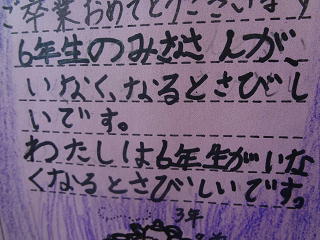 ご卒業おめでとうございます
6年生のみなさんが、
いなく、なるとさびし
いです。
わたしは6年生がいな
くなるとさびしいです。
3年